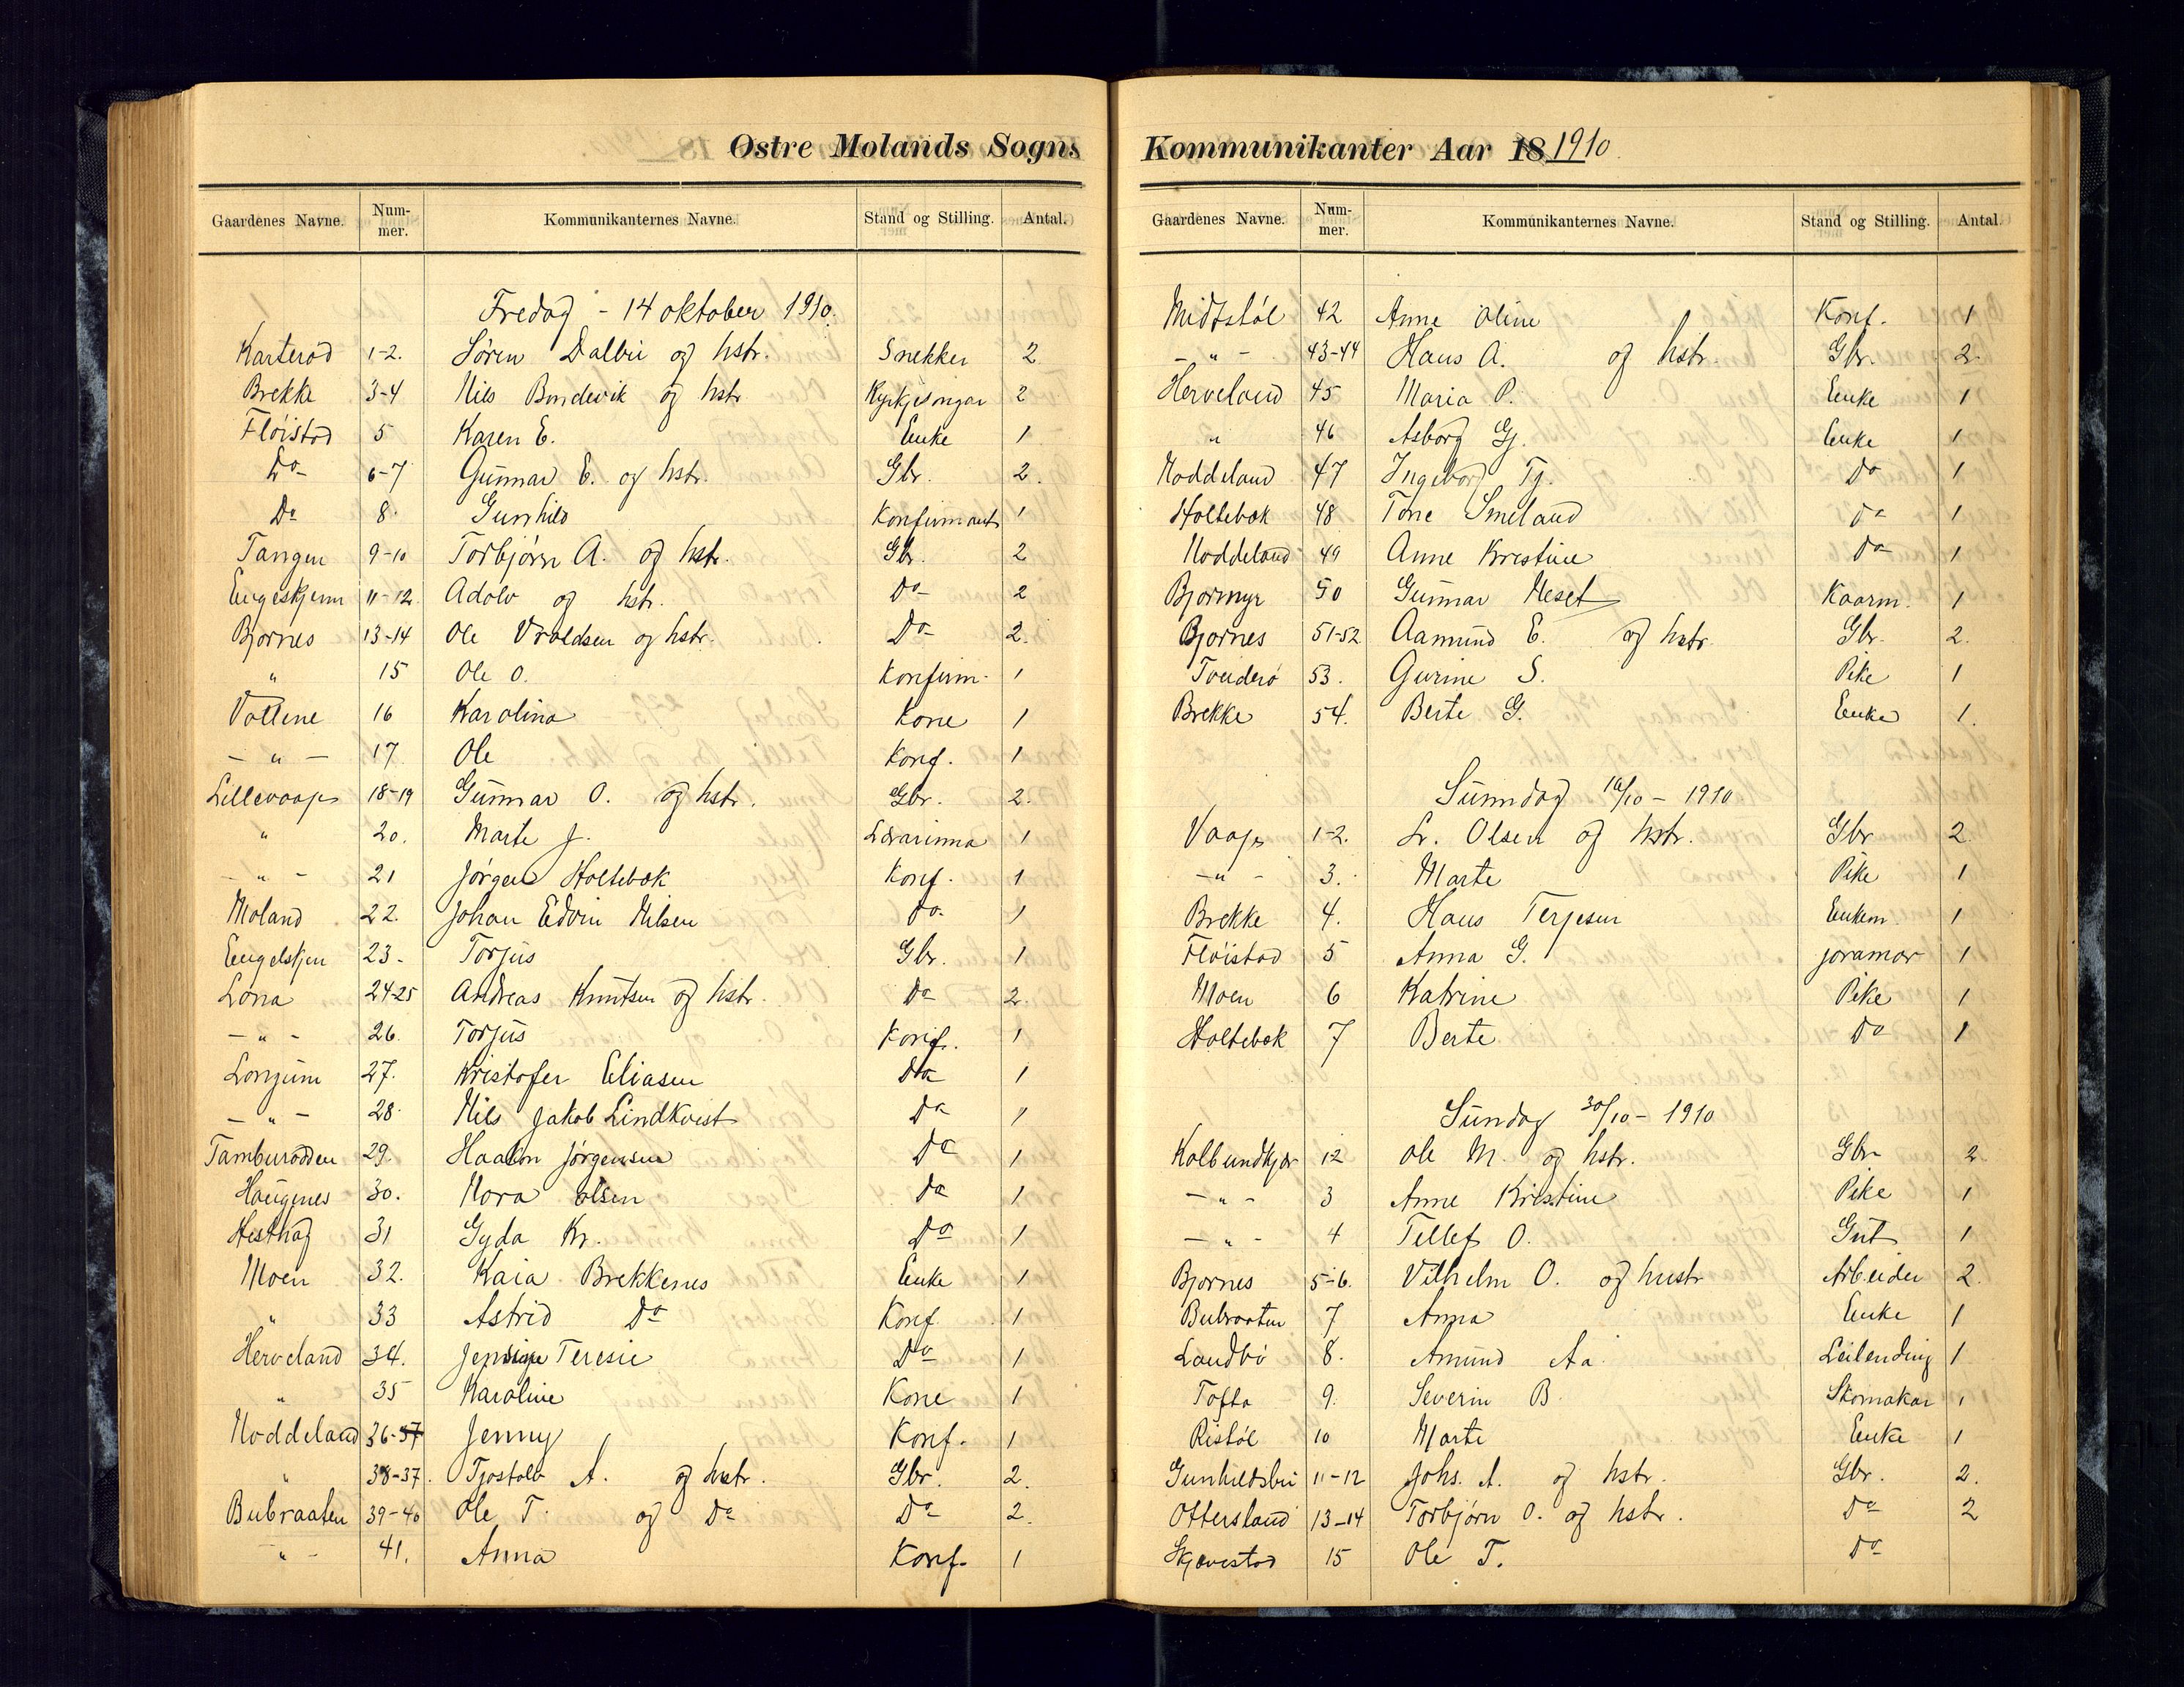 Ostre Molands Sogns
Gaardenes Navne. Nummer. Kommunikanternes Navne. Stand og Stilling. Antal.
Fredag - 14 oktober 1910.
Karterød 1-2. Søren Dalbu og hstr. Snekker 2
Brekke 3-4 Nils Bondevik og hstr Kyrkjesongar 2
Fløistad 5 Karen E. Enke 1
Do 6-7 Gunnar E. og hstr. Gbr. 2.
Do 8. Gunhild Konfirmant 1
Tangen 9-10 Torbjørn A. og hstr. Gbr. 2
Engeskjenn 11-12. Adolv og hstr. Do 2
Bjornes 13-14 Ole Vroldsen og hstr. Do 2.
" 15 Ole O. Konfirm. 1
Vottene 16 Karolina Kone 1
- " - 17. Ole Konf. 1
Lillevaaje 18-19 Gunnar O. og hstr. Gbr. 2.
" 20. Marte J. Lærarinna 1
- " - 21 Jørgen Holtebek Konf. 1
Moland 22. Johan Edvin Nilsen Do 1
Engelskjen 23. Torjus Gbr. 1
Lona 24-25 Andreas Knutsen og hstr. Do 2.
- " - 26. Torjus Konf. 1
Longum 27. Kristofer Eliasen Do 1
- " - 28. Nils Jakob Lindkvist Do 1
Tamburodden 29. Haakon Jørgensen Do 1
Haugenes 30. Nora Olsen Do 1
Hesthag 31 Gyda Kr. Do 1
Moen 32. Kaia Brekkenes Enke 1
" 33 Astrid Do Konf. 1
Herveland 34. Jensine Teresie Do 1
" 35 Karoline Kone 1
Noddeland 36-37 Jenny Konf. 1
" 38-37. Tjostolv A. og hstr. Gbr. 2.
Bubraaten 39-40 Ole T. og Do Do 2.
- " - 41. Anna Konf. 1
Kommunikanter Aar 18 1910.
Gaardenes Navne. Nummer. Kommunikanternes Navne. Stand og Stilling. Antal.
Midtstøl 42 Anne Oline Konf. 1
- " - 43-44 Hans A. og hstr. Gbr. 2.
Herveland 45 Maria P. Enke 1
" 46 Asborg Gj. Enke 1
Noddeland 47 Ingeborg Tj. Do 1
Holtebek 48 Tone Smeland Do 1
Noddeland 49 Anne Kristine Do 1
Bjormyr 50 Gunnar Neset Kaarm. 1
Bjornes 51-52 Aamund E. og hstr. Gbr. 2.
53. Gurine S. Pike 1
Brekke 54. Berte G. Enke 1.
Sunndag 16/10 - 1910
Vaaje 1-2. Olsen og hstr. Gbr 2.
- " - 3. Marte Pike 1
Brekke 4. Hans Terjesen Enkem 1
Fløistad 5 Anna G. joramor 1
Moen 6 Katrine Pike 1
Holtebek 7 Berte Do 1
Sundag 30/10 - 1910
Kolbundkjær 12 Ole M. og hstr. Gbr 2
- " - 3 Anne Kristine Pike 1
- " - 4 Tellef O. Gut 1
Bjornes 5-6. Vilhelm O. og hustr Arbeider 2.
Bubraaten 7 Anna Enke 1
Landbø 8. Amund Aa. Leilending 1
Tofta 9. Severin B. Skomakar 1
Ristøl 10 Marte Enke 1
Gunhildsbu 11-12 Johs. A. og hstr. Gbr. 2.
Ottersland 13-14 Torbjørn O. og hstr. Do 2
Skjævestad 15 Ole T. Do